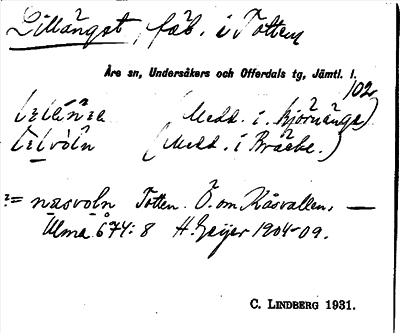 Lillängst, fäb. i Totten
Åre sn, Undersåkers och Offerdals tg, Jämtl. l.
102
(Medd. i Björnänge)
(Medd. i Bräcke.)
= Totten. Ö. om Råsvallen. —
Ulma 674: 8 H. Geijer 1904-09.
C. LINDBERG 1931.